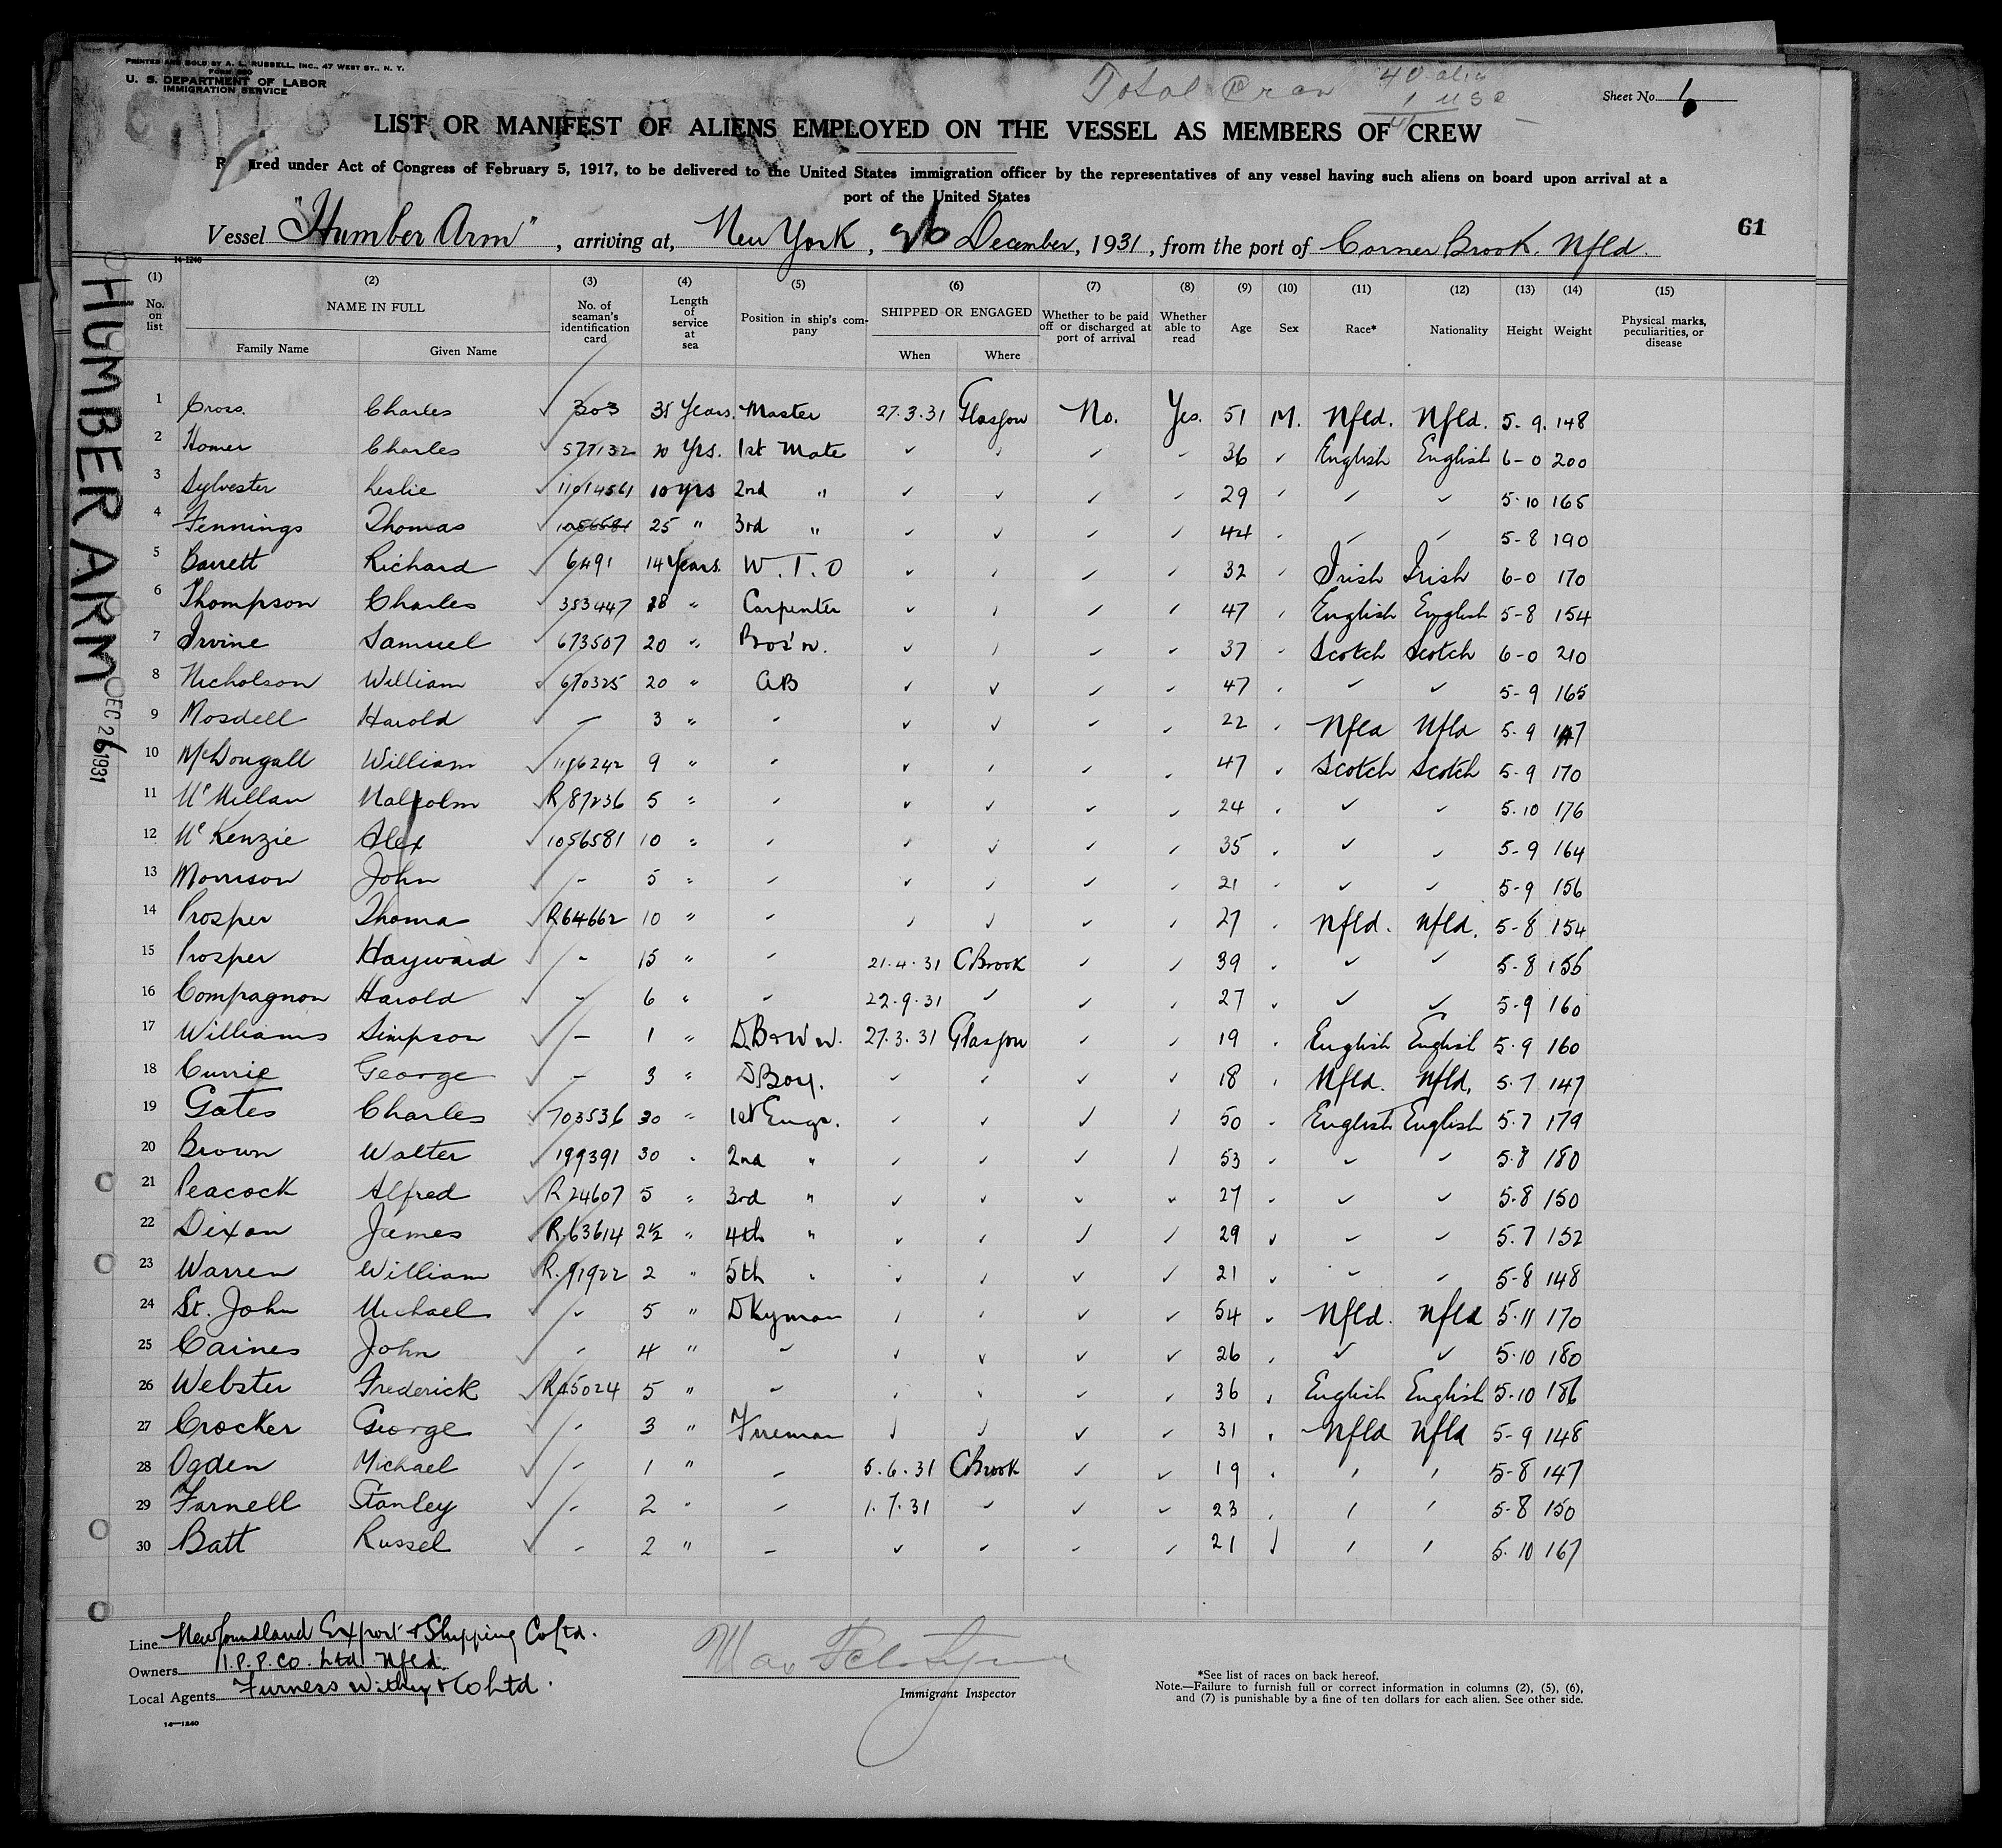 PRINTED AND SOLD BY A. L. RUSSELL, INC., 47 WEST ST., N. Y.
FORM 680
U. S. DEPARTMENT OF LABOR
IMMIGRATION SERVICE
Total Crew 40 alie
1 USC
41
Sheet No. 1
LIST OR MANIFEST OF ALIENS EMPLOYED ON THE VESSEL AS MEMBERS OF CREW
R ired under Act of Congress of February 5, 1917, to be delivered to the United States immigration officer by the representatives of any vessel having such aliens on board upon arrival at a
port of the United States
61
Vessel "Humber Arm", arriving at, New York, 26 December, 1931, from the port of Corner Brook. Nfld.
14-1240
HUMBER ARM DEC 26 1931
(1) (2) (3) (4) (5) (6) (7) (8) (9) (10) (11) (12) (13) (14) (15)
No. on list NAME IN FULL Family Name Given Name No. of seaman's identification card Length of service at sea Position in ship's company SHIPPED OR ENGAGED When Where Whether to be paid off or discharged at port of arrival Whether able to read Age Sex Race* Nationality Height Weight Physical marks, peculiarities, or disease
1 Cross. Charles ✓ 303 35 Years. Master 27.3.31 Glasgow No. Yes. 51 M. Nfld. Nfld. 5-9. 148
2 Homer Charles ✓ 577132 20 Yrs. 1st Mate ✓ ✓ ✓ ✓ 36 ✓ English English 6-0 200
3 Sylvester Leslie ✓ 11014561 10 yrs 2nd " ✓ ✓ ✓ ✓ 29 ✓ ✓ ✓ 5.10 165
4 Jennings Thomas ✓ 1056581 25 " 3rd " ✓ ✓ ✓ ✓ 44 ✓ ✓ ✓ 5-8 190
5 Barrett Richard ✓ 6491 14 Years. W.T.O ✓ ✓ ✓ ✓ 32 ✓ Irish Irish 6-0 170
6 Thompson Charles ✓ 353447 28 " Carpenter ✓ ✓ ✓ ✓ 47 ✓ English English 5-8 154
7 Irvine Samuel ✓ 673507 20 " Bos'n. ✓ ✓ ✓ ✓ 37 ✓ Scotch Scotch 6-0 210
8 Nicholson William ✓ 670325 20 " AB ✓ ✓ ✓ ✓ 47 ✓ ✓ ✓ 5-9 165
9 Mosdell Harold ✓ - 3 " ✓ ✓ ✓ ✓ ✓ 22 ✓ Nfld Nfld 5-9 147
10 McDougall William ✓ 1106242 9 " ✓ ✓ ✓ ✓ ✓ 47 ✓ Scotch Scotch 5-9 170
11 McMillan Malcolm ✓ R 87236 5 " ✓ ✓ ✓ ✓ ✓ 24 ✓ ✓ ✓ 5.10 176
12 McKenzie Alex ✓ 1056581 10 " ✓ ✓ ✓ ✓ ✓ 35 ✓ ✓ ✓ 5-9 164
13 Morrison John ✓ - 5 " ✓ ✓ ✓ ✓ ✓ 21 ✓ ✓ ✓ 5-9 156
14 Prosper Thoma ✓ R64662 10 " ✓ ✓ ✓ ✓ ✓ 27 ✓ Nfld. Nfld. 5-8 154
15 Prosper Hayward ✓ - 15 " ✓ 21.4.31 C Brook ✓ ✓ 39 ✓ ✓ ✓ 5-8 156
16 Compagnon Harold ✓ - 6 " ✓ 22.9.31 ✓ ✓ ✓ 27 ✓ ✓ ✓ 5-9 160
17 Williams Simpson ✓ - 1 " D.Bos'n. 27.3.31 Glasgow ✓ ✓ 19 ✓ English English 5.9 160
18 Currie George ✓ - 3 " D Boy. ✓ ✓ ✓ ✓ 18 ✓ Nfld. Nfld. 5.7 147
19 Gates Charles ✓ 703536 30 " 1st Engr. ✓ ✓ ✓ ✓ 50 ✓ English English 5.7 179
20 Brown Walter ✓ 199391 30 " 2nd " ✓ ✓ ✓ ✓ 53 ✓ ✓ ✓ 5.8 180
21 Peacock Alfred ✓ R 24607 5 " 3rd " ✓ ✓ ✓ ✓ 27 ✓ ✓ ✓ 5.8 150
22 Dixon James ✓ R.63614 2½ " 4th " ✓ ✓ ✓ ✓ 29 ✓ ✓ ✓ 5.7 152
23 Warren William ✓ R.91922 2 " 5th " ✓ ✓ ✓ ✓ 21 ✓ ✓ ✓ 5-8 148
24 St. John Michael ✓ - 5 " DKyman ✓ ✓ ✓ ✓ 54 ✓ Nfld. Nfld 5.11 170
25 Caines John ✓ - 4 " ✓ ✓ ✓ ✓ ✓ 26 ✓ ✓ ✓ 5.10 180
26 Webster Frederick ✓ R45024 5 " ✓ ✓ ✓ ✓ ✓ 36 ✓ English English 5.10 186
27 Crocker George ✓ - 3 " Fireman ✓ ✓ ✓ ✓ 31 ✓ Nfld Nfld 5-9 148
28 Ogden Michael ✓ - 1 " - 5.6.31 CBrook ✓ ✓ 19 ✓ ✓ ✓ 5-8 147
29 Farnell Stanley ✓ - 2 " - 1.7.31 ✓ ✓ ✓ 23 ✓ ✓ ✓ 5-8 150
30 Batt Russel ✓ - 2 " - ✓ ✓ ✓ ✓ 21 ✓ ✓ ✓ 5.10 167
Line Newfoundland Export & Shipping Co Ltd.
Owners I.P.P.Co. Ltd Nfld.
Local Agents Furness Withy & Co Ltd.
14-1240
Immigrant Inspector
*See list of races on back hereof.
Note.—Failure to furnish full or correct information in columns (2), (5), (6),
and (7) is punishable by a fine of ten dollars for each alien. See other side.